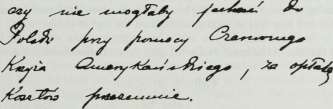 czy nie mogłaby jechać do
Polski przy pomocy Czerwonego
Krzyża Amerykańskiego, za opłatą
kosztów przezemnie.